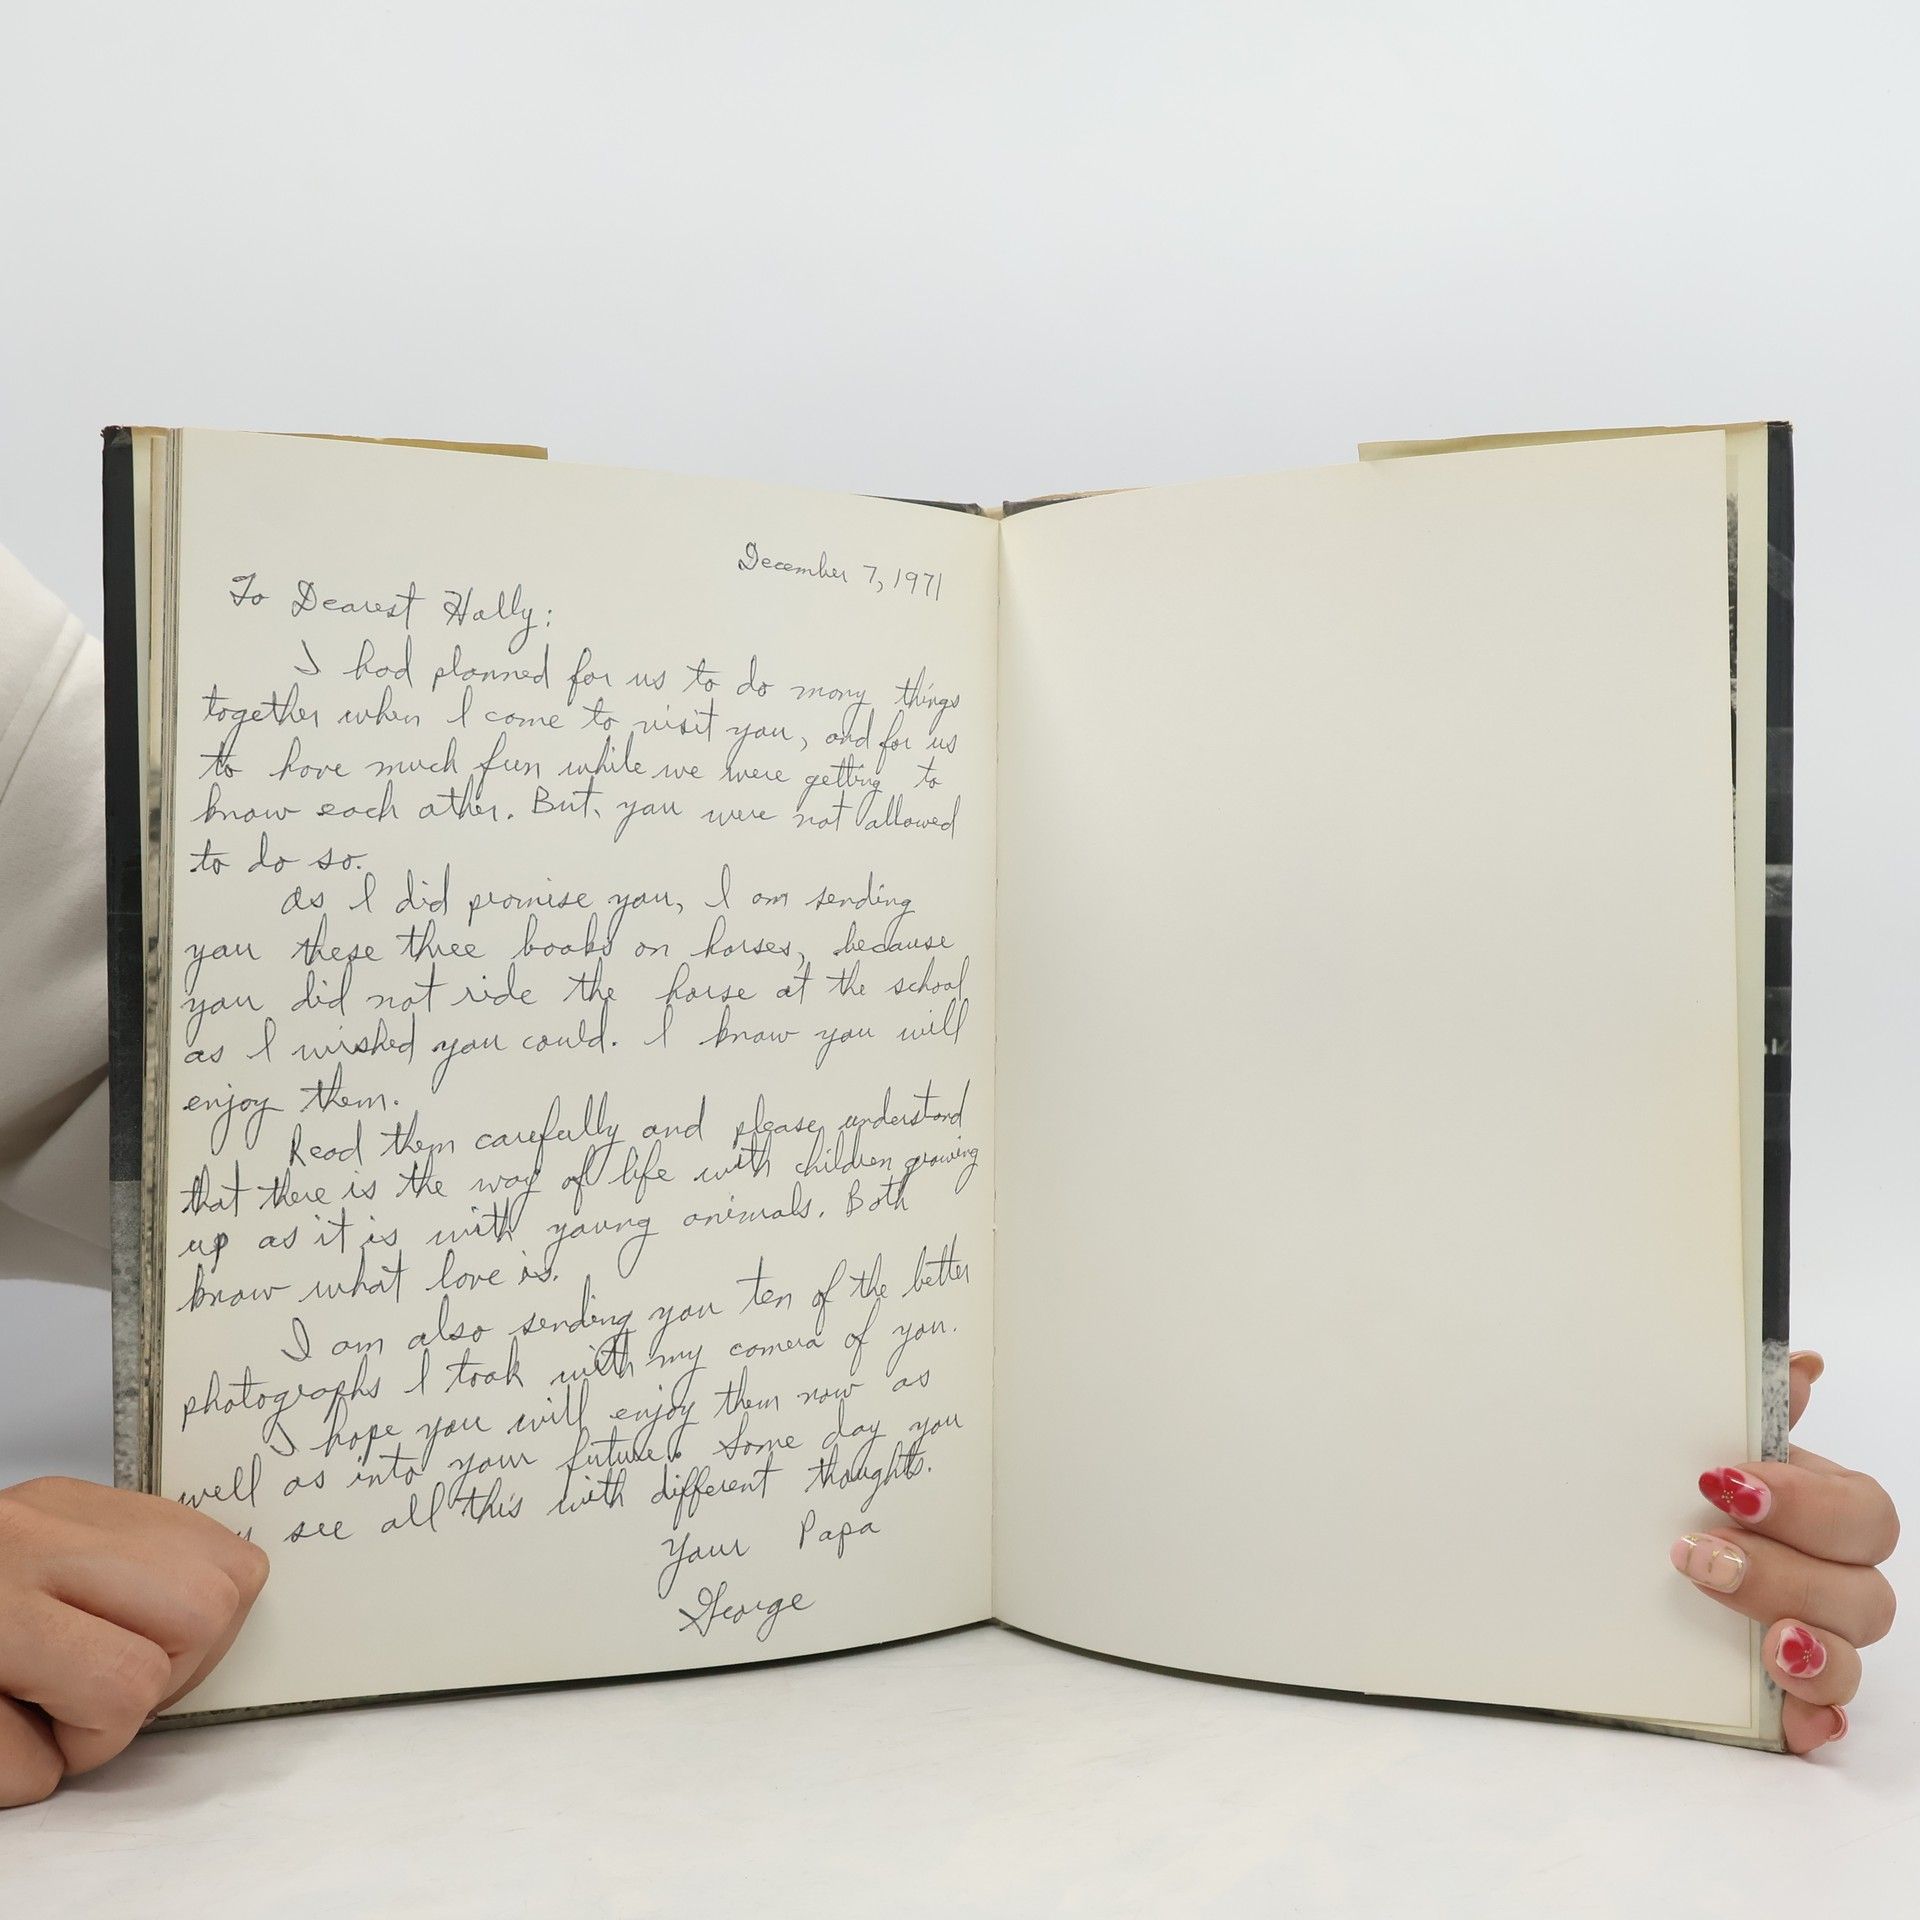 December 7, 1971
To Dearest Holly:
I had planned for us to do many things
together when I come to visit you, and for us
to have much fun while we were getting to
know each other. But, you were not allowed
to do so.
As I did promise you, I am sending
you these three books on horses, because
you did not ride the horse at the school
as I wished you could. I know you will
enjoy them.
Read them carefully and please understand
that there is the way of life with children growing
up as it is with young animals. Both
know what love is.
I am also sending you ten of the better
photographs I took with my camera of you.
I hope you will enjoy them now as
well as into your future. Some day you
see all this with different thoughts.
Your Papa
George